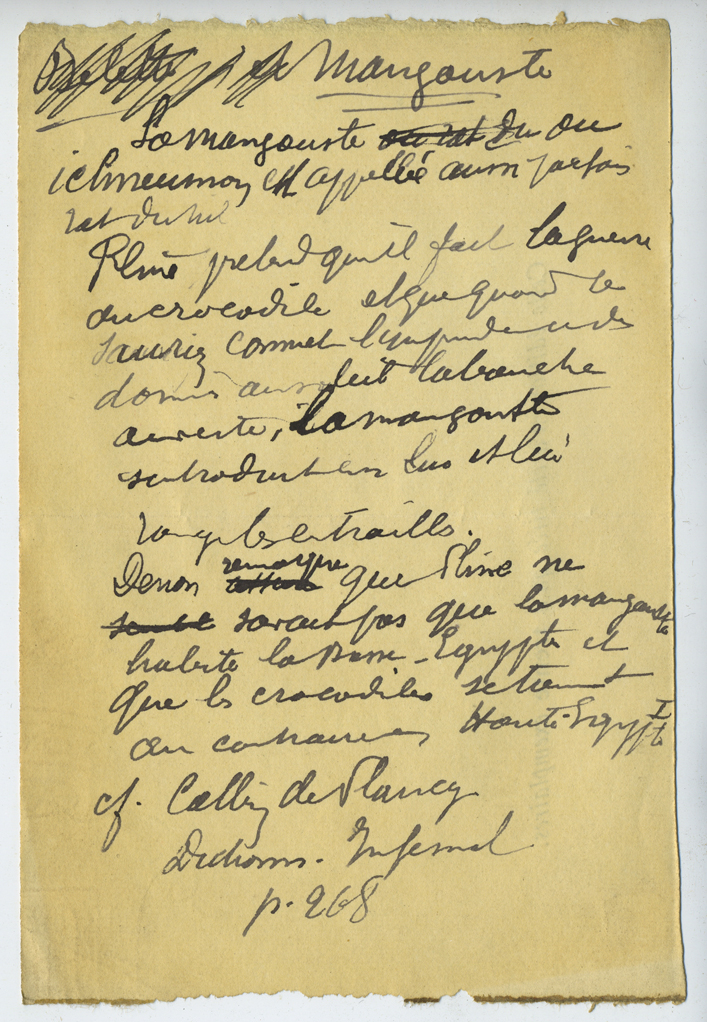 Belette et Mangouste
La mangouste ou rat du ou
ichneumon est appellée aussi parfois
rat du nil
Pline pretend qu'il fait la guerre
au crocodile et que quand le
saurien commet l'imprudence de
dormir au soleil la bouche
ouverte, la mangouste
s'introduit en lui et lui
ronge les entrailles.
Denon remarque que Pline ne
savait pas que la mangouste
habite la Basse-Egypte et
que les crocodiles se tiennent
au contraire en Haute-Egypte
cf. Collin de Plancy
Dictionn. Infernal
p. 268